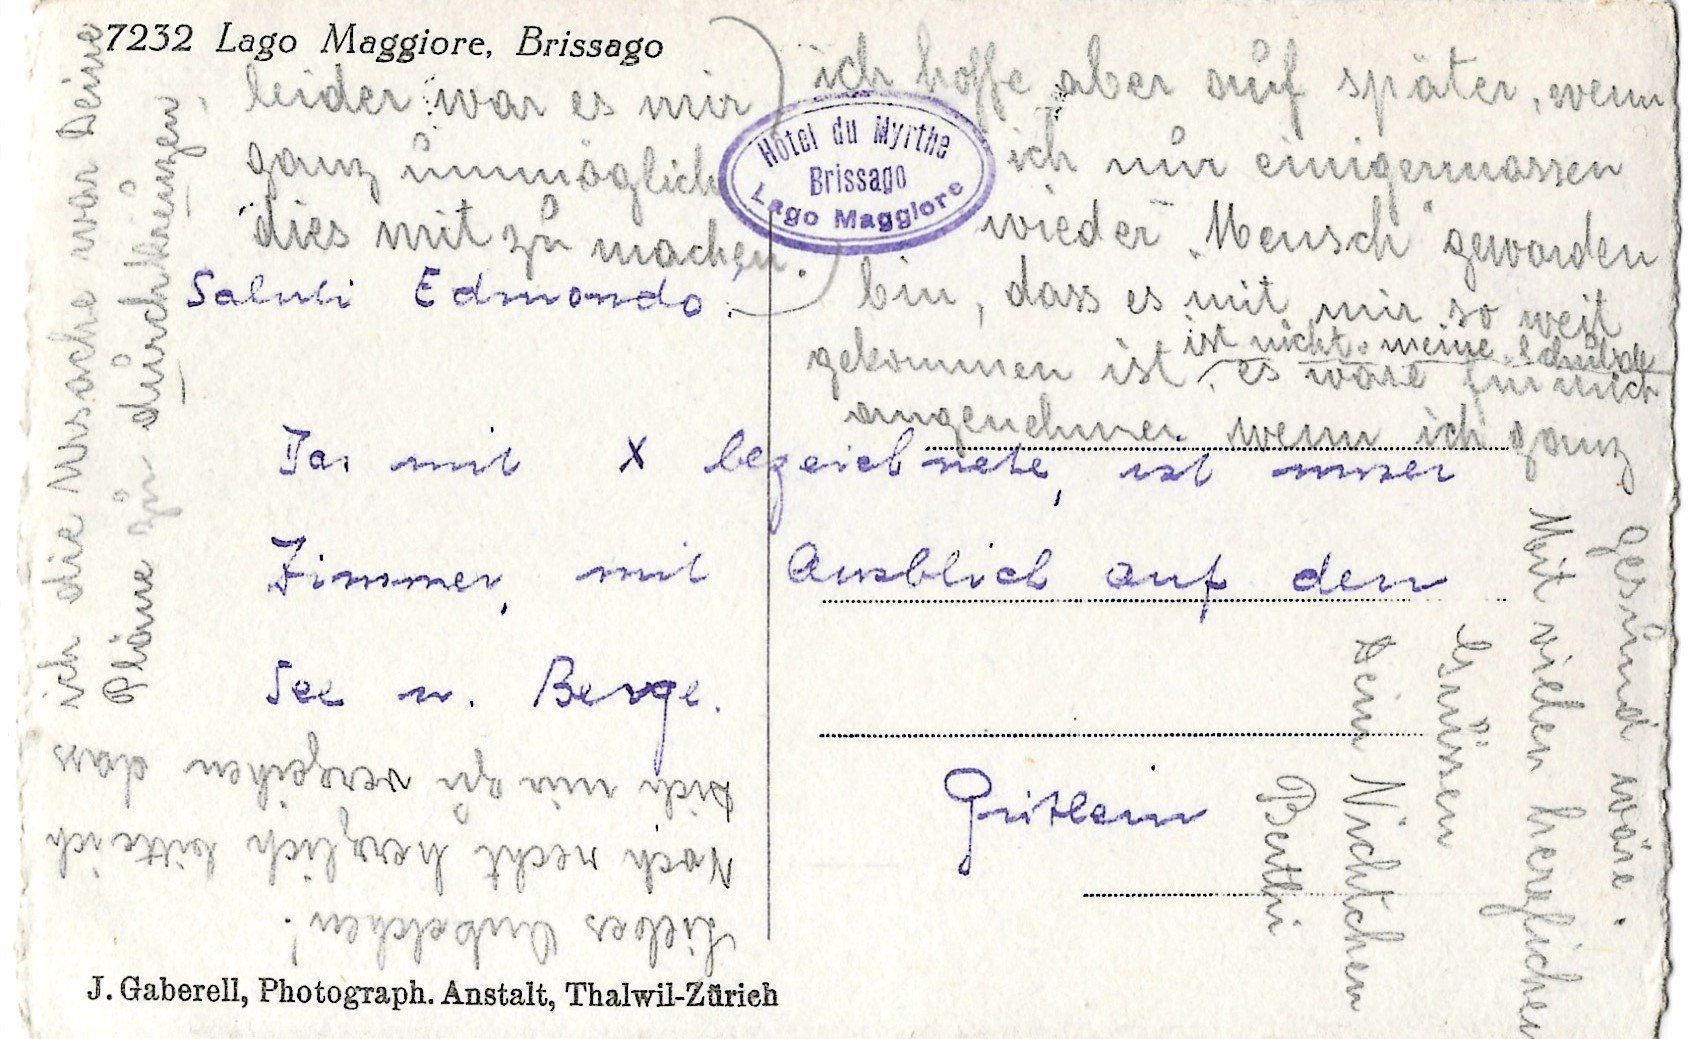 7232 Lago Maggiore, Brissago
Hôtel du Myrthe
Brissago
Lago Maggiore
Saluti Edmondo.
Das mit X bezeichnete, ist unser
Zimmer, mit Ausblick auf den
See u. Berge.
Gritlein
Liebes
Noch recht herzlich bitte ich
Dich mir zu verzeihen dass
ich die Ursache war Deine
Pläne zu durchkreuzen,
leider war es mir
ganz unmöglich
dies mit zu machen.
ich hoffe aber auf später, wenn
ich nur einigermassen
wieder "Mensch" geworden
bin, dass es mit mir so weit
gekommen ist, ist nicht meine Schuld
es wäre für mich
angenehmer wenn ich ganz
gesund wäre.
Mit vielen herzlichen
Grüssen
Dein Nichtchen
Berthi
J. Gaberell, Photograph. Anstalt, Thalwil-Zürich